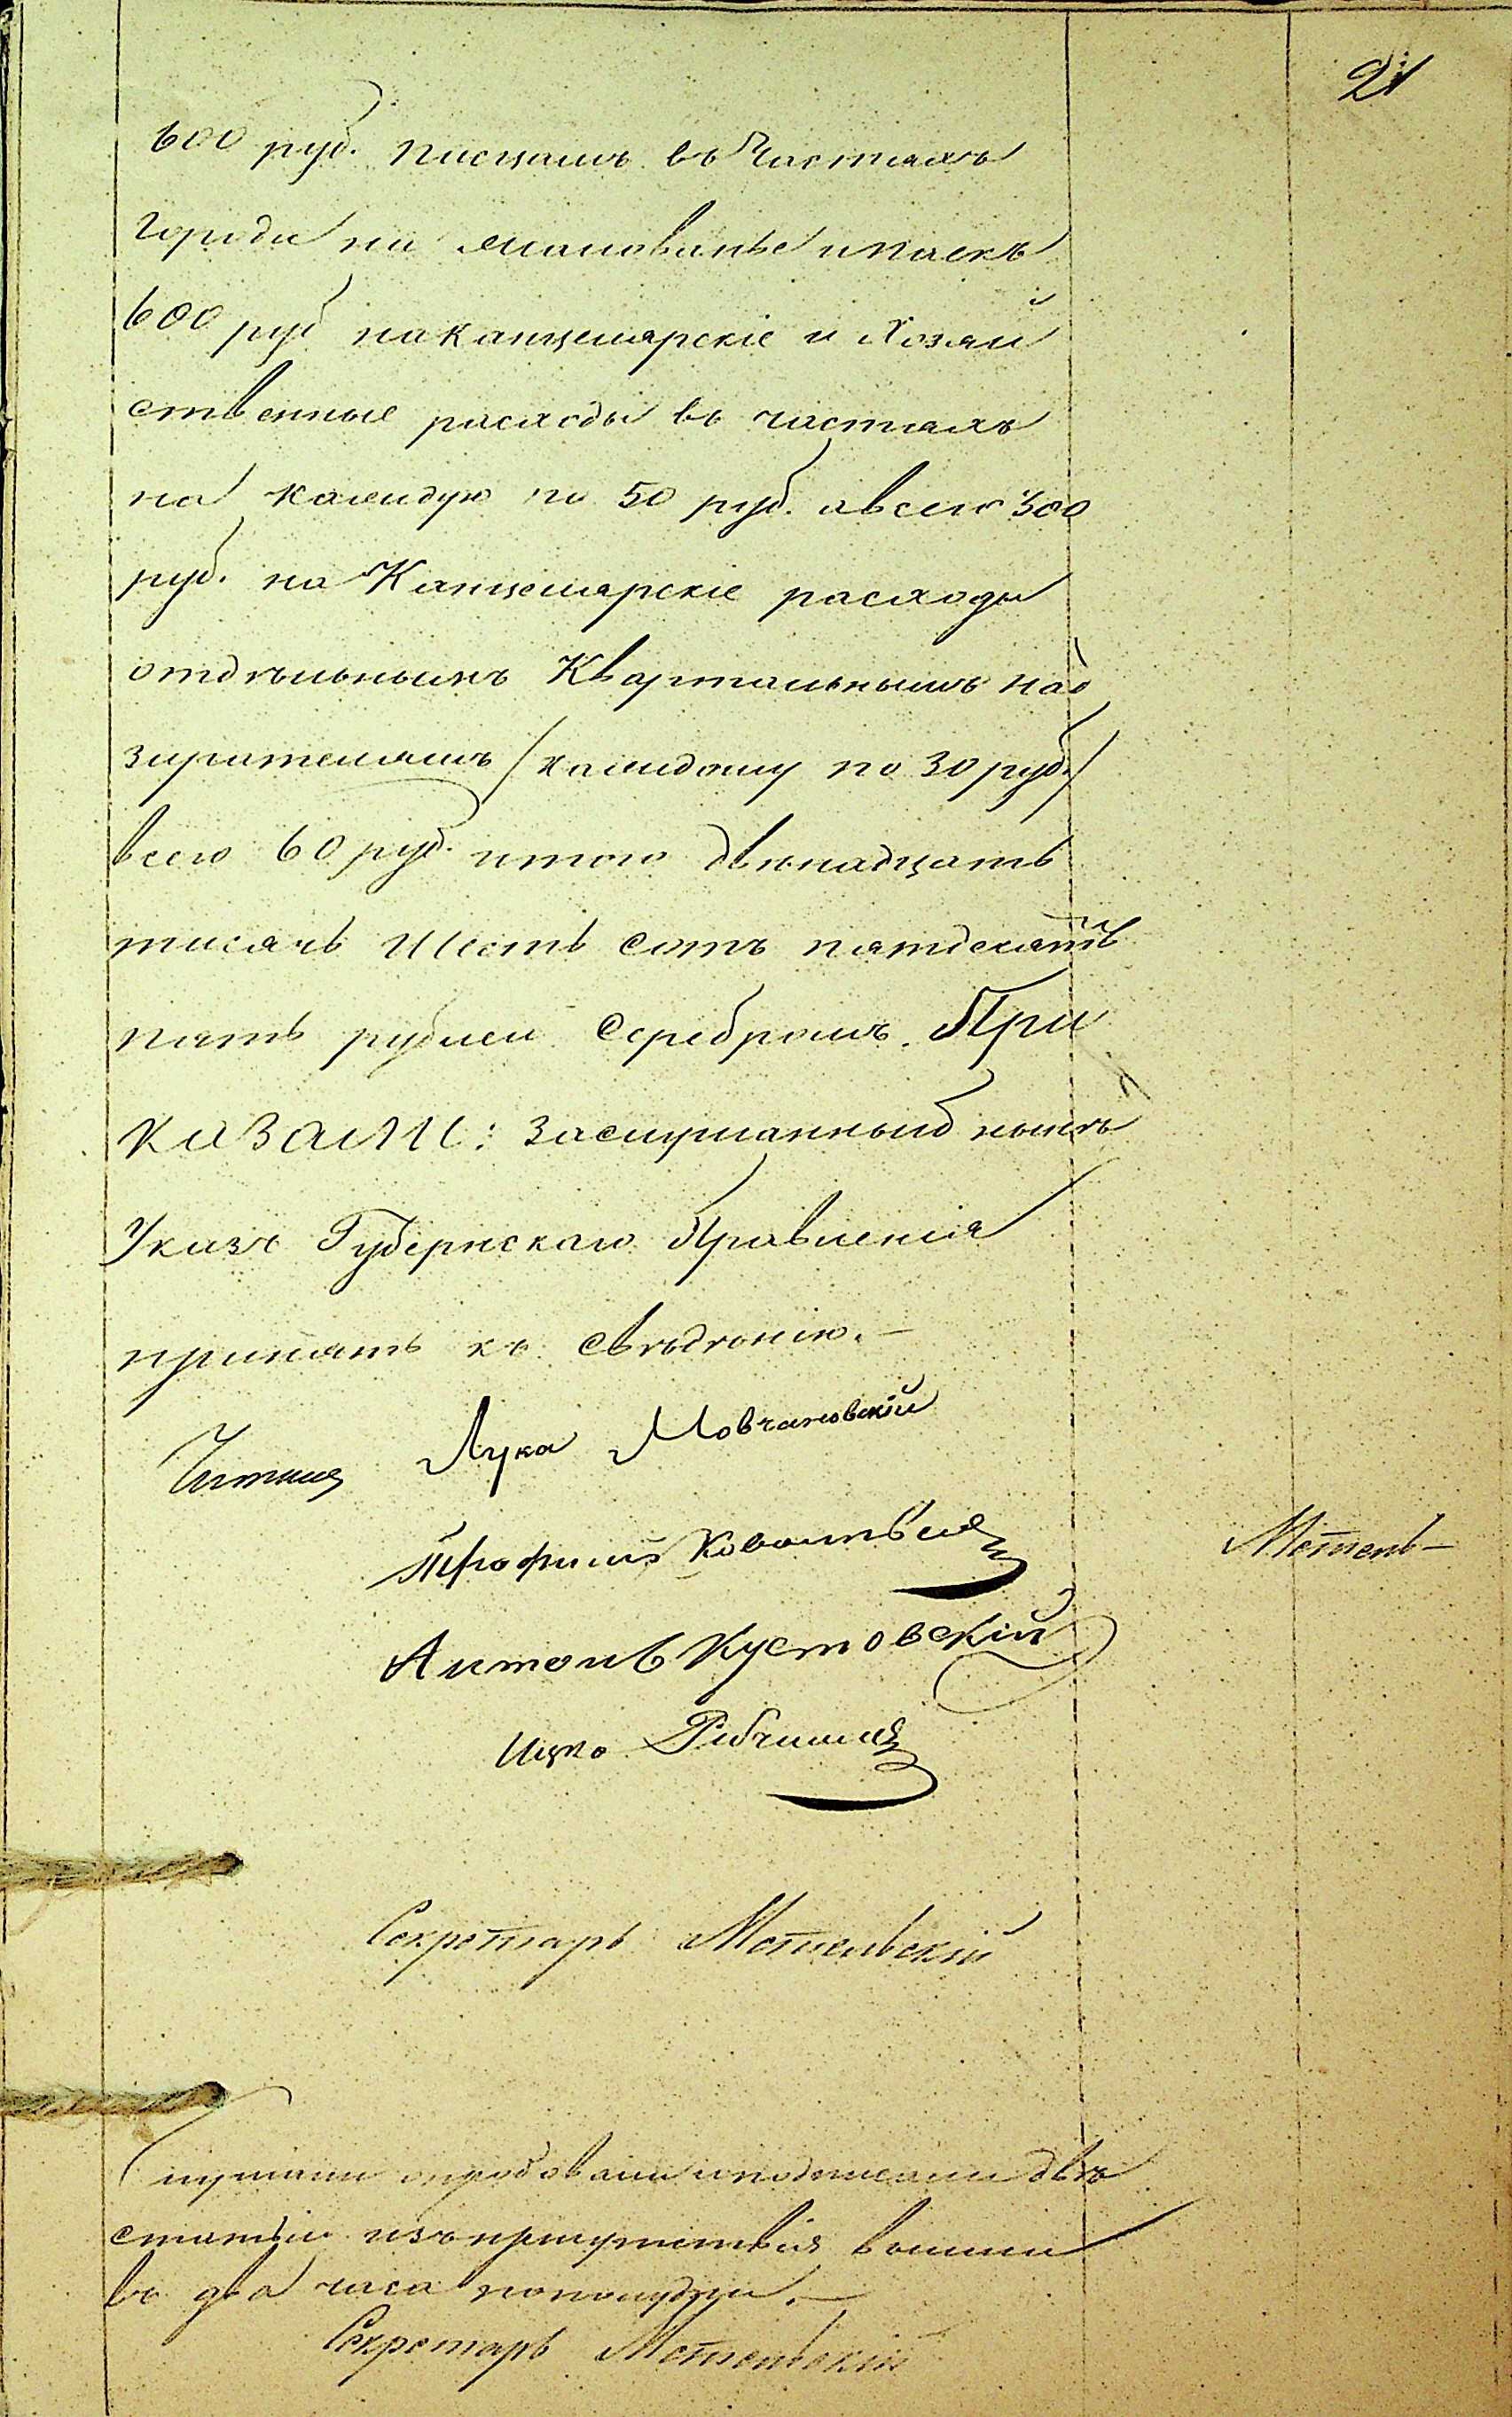 21
600 руб. писцамъ въ Частяхъ
города на жалованье и паекъ
600 руб на канцелярскіе и Хозяй
ственные расходы въ частяхъ
на каждую по 50 руб. а всего 300
руб. на Канцелярскіе расходы
отдѣльнымъ Квартальнымъ над
зирателямъ /каждому по 30 руб./
всего 60 руб. итого двѣнадцать
тисячъ Шесть сотъ пятдесятъ
пять рублей Серебромъ. При
казали: Заслушанный нынѣ
Указъ Губернскаго Правленія
принять къ свѣдѣнію.—
Лука Мовчановскій
Трофимъ
Антонъ Кустовскій
Ицко
Мотель—
Секретарь Мотельскій
Слушали опробовали и подписали двѣ
статьи изъ присутствія вышли
въ два часа пополудни.—
Секретарь Мотельскій